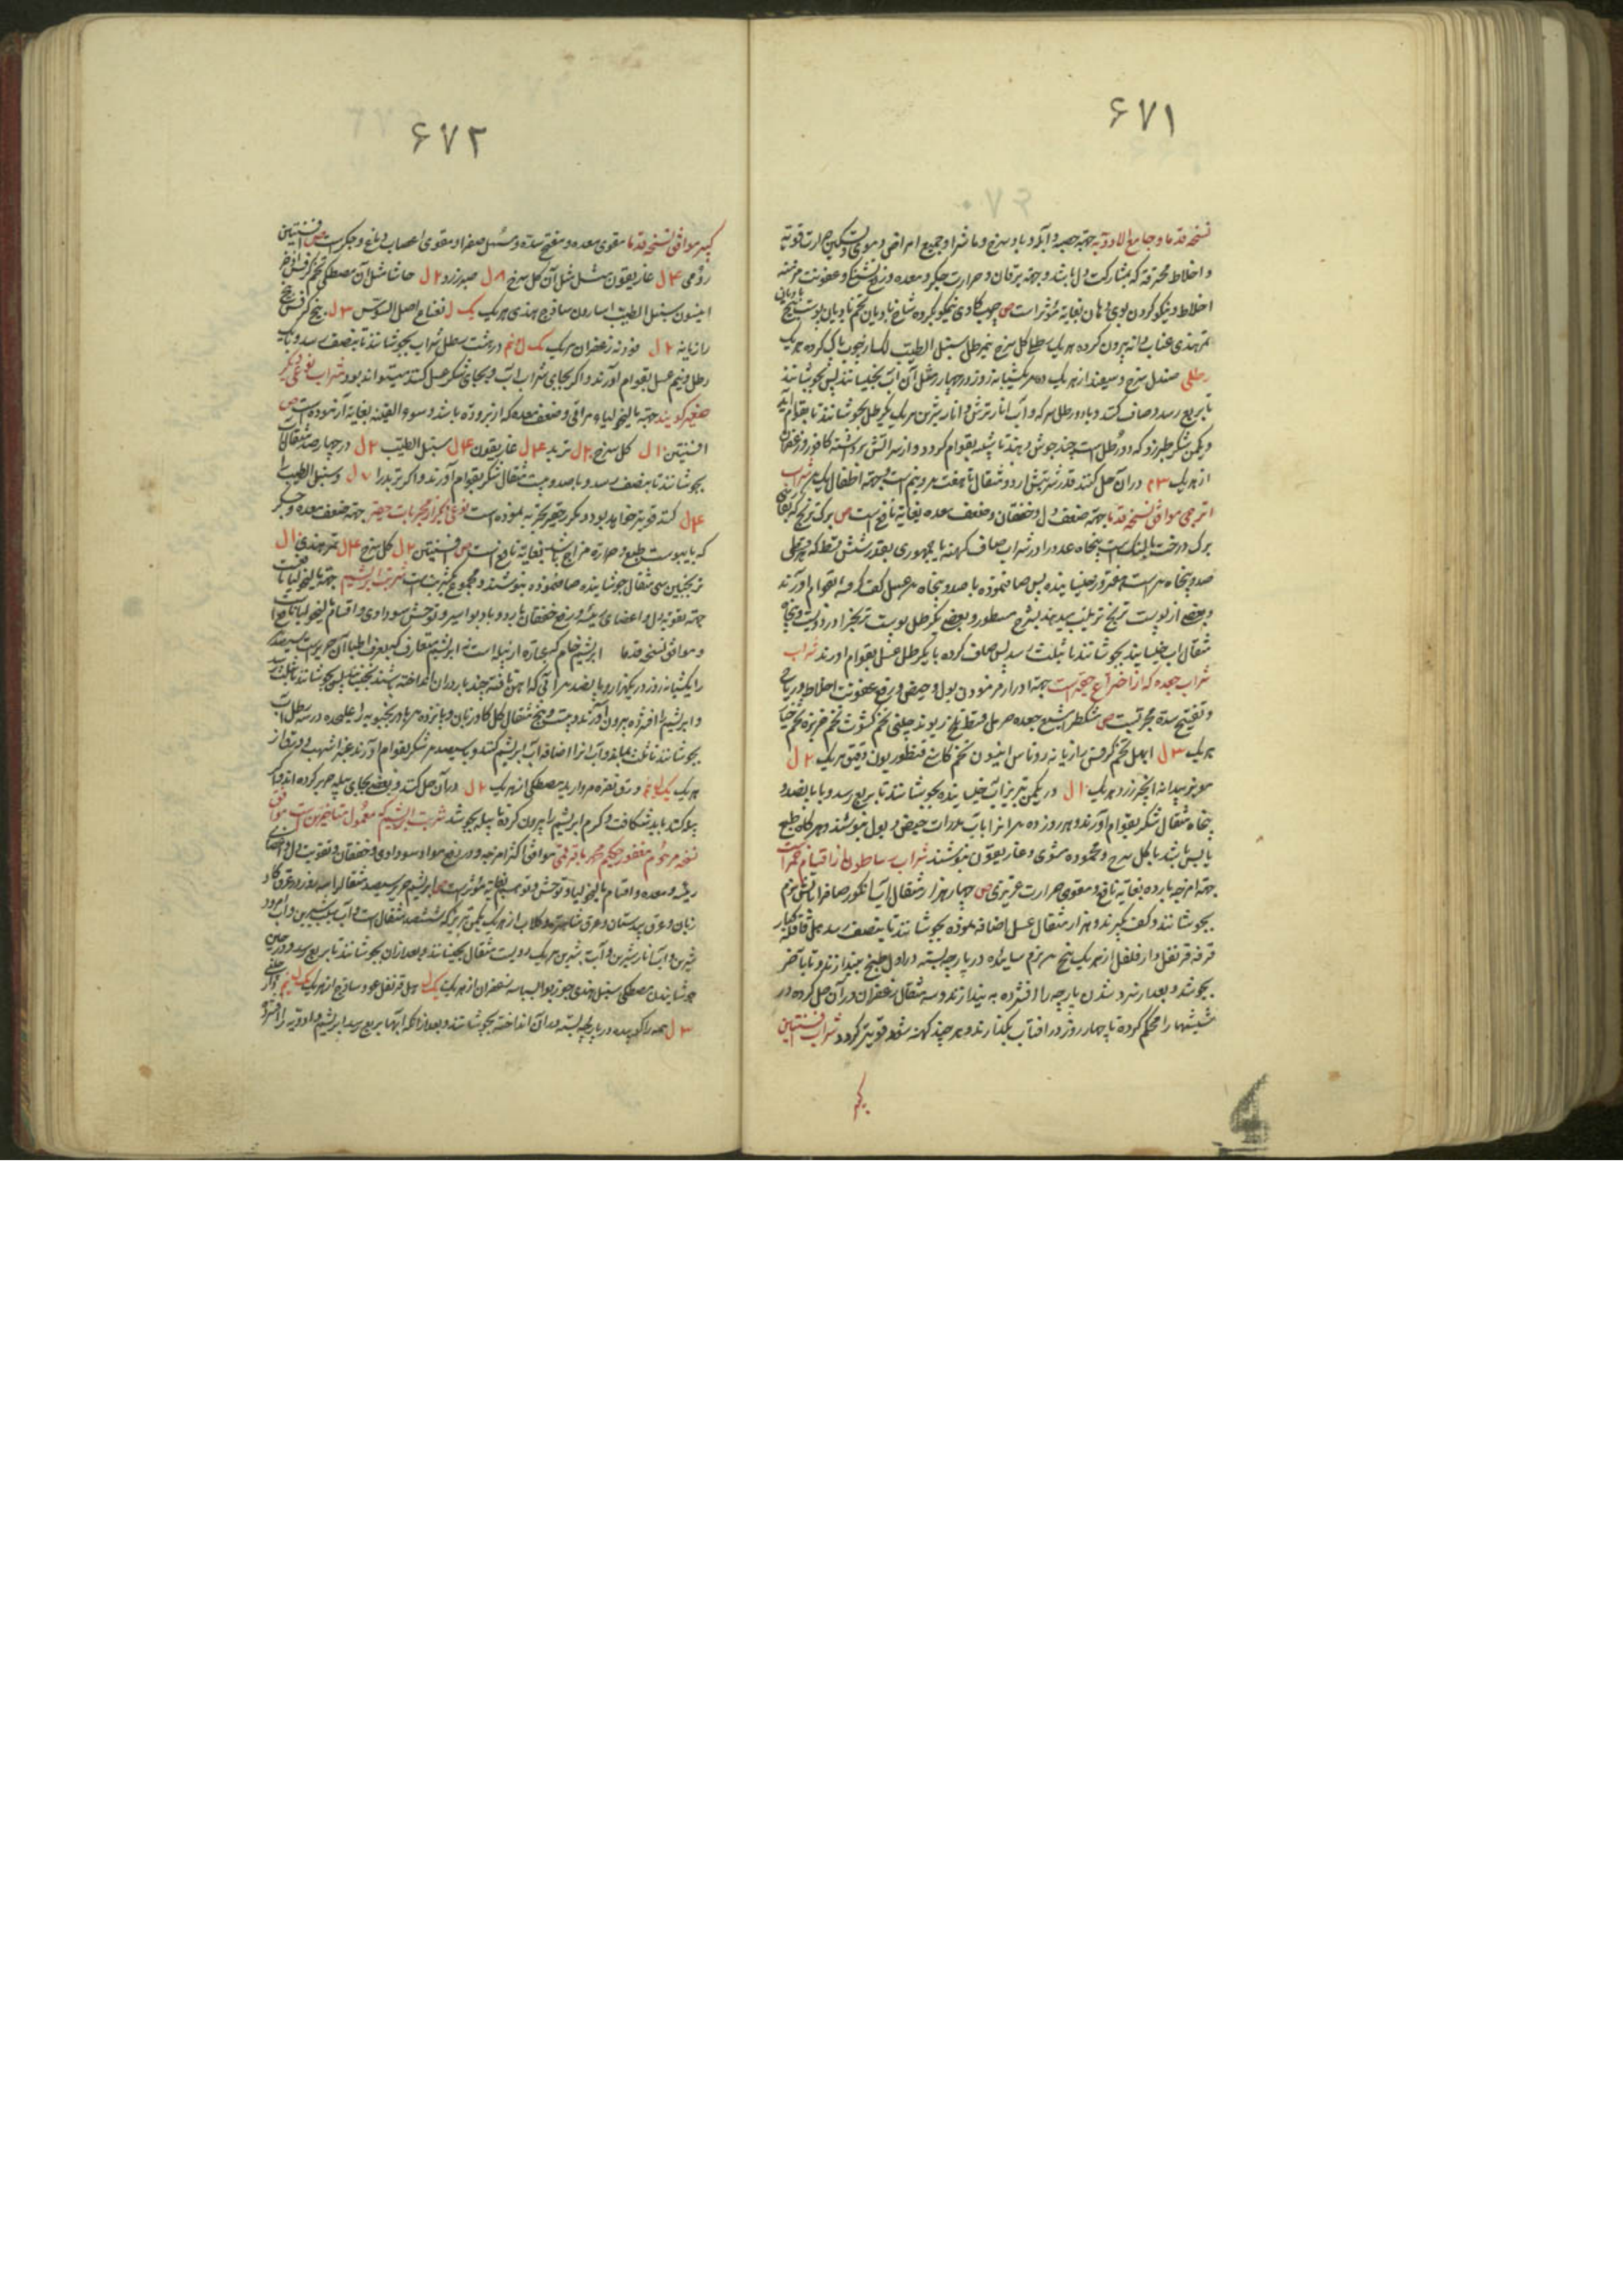 ۶۷۱
نسخه قدما و جامع الادویه جهة حصبه و آبله و باد سرخ و ماشرا و جمیع امراض دموی و تسکین حرارت قویه
و اخلاط محترقه که بمشارکت دل باشد و جهة یرقان و حرارت جکر و معده و رفع تشنکی و عفونت مزمنه
اخلاط و نیکو کردن بوی دهان بغایة مؤثر است ص چوب کادی نیکو
تمرهندی عناب دانه بیرون کرده هر یک رطل کل سرخ نیم رطل سنبل الطیب پاک کرده هر یک
رطلی صندل سرخ و سفید از هر یک ده یکشبانه روز در چهار مثل آن آب بخیسانند پس بجوشانند
تا بربع رسد و صاف کنند و با دو رطل سرکه و آب انار ترش و انار شیرین هر یک یکرطل بجوشانند تا بقوام آید
و یکمن شکر طبرزد که دو رطل است چند جوش دهند تا بقوام کردد و از سر آتش برداشته کافور و زعفران
از هر یک ۳ م در آن حل کنند قدر شربتش از دو مثقال تا هفت درم و نیم است و جهة اطفال یک درم شراب
اترجی موافق نسخه قدما جهة ضعف دل و خفقان و ضعف معده بغایة نافع است ص برک ترنج که بفارسی
برک درخت بالنک است پنجاه عدد را در شراب صاف کهنه یا جمهوری بقدر شش قسط که هر قسطی
صد و پنجاه درم است روز بخیسانیده پس صاف نموده با صد و پنجاه درم عسل کف کرفته بقوام آورند
و بعضی از پوست ترنج ترتیب میدهند بشرح مسطور و بعضی یکرطل پوست ترنج را در دویست و پنجاه
مثقال آب خیسانیده بجوشانند تا بثلث رسد پس صاف کرده با یکرطل عسل بقوام آورند شراب
شراب جعده که از اختراع حقیر است جهة ادرار فرمودن بول و حیض و رفع عفونت اخلاط و ریاح
و تفتیح سده مجربست ص مشکطرامشیع جعده
هر یک ۳ ل ابهل تخم کرفس رازیانه روناس انیسون تخم کاسنی قنطوریون دقیق هر یک ۲ ل
مویز بیدانه انجیر زرد هر یک ۱۰ ل در یکمن تبریز آب خیسانیده بجوشانند تا بربع رسد و با پانصد و
پنجاه مثقال شکر بقوام آورند و هر روز ده درم از آن با آب مدرات حیض و بول بنوشند و هر کاه طبع
یابس باشد با کل سرخ و محموده مشوی و غاریقون بنوشند شراب ساطون از اقسام خمر است
جهة امزجه بارده بغایة نافع و مقوی حرارت غریزی ص چهار هزار مثقال آب انکور صاف را بآتش نرم
بجوشانند و کف بگیرند و هزار مثقال عسل اضافه نموده بجوشانند تا بنصف رسد قاقله کبار
قرفه قرنفل دار فلفل از هر یک پنج درم نرم ساییده در پارچه بسته در اول طبخ بیندازند و تا بآخر
بجوشد و بعد از سرد شدن پارچه را افشرده بیندازند و سه مثقال زعفران در آن حل کرده در
شیشها را محکم کرده تا چهار روز در آفتاب بگذارند و هر چند کهنه شود قویتر کردد شراب افسنتین
کبیر
۶۷۲
کبیر موافق نسخه قدما مقوی معده و مفتح سده و مسهل صفرا و مقوی اعصاب دماغ و جکر است ص افسنتین
رومی ۴ ل غاریقون مثل آن کل سرخ ۸ ل صبر زرد ۲ ل حاشا مثل آن مصطکی تخم کرفس اذخر
انیسون سنبل الطیب اسارون ساذج هندی هر یک یک ل اصل السوس ۳ ل بیخ کرفس بیخ
رازیانه ۲ ل زعفران هر یک یک ل نیم در هشت رطل شراب بجوشانند تا بنصف رسد و با یک
رطل و نیم عسل بقوام آورند و اکر بجای شراب آب و بجای شکر عسل کنند میتواند بود شراب نوعی دیکر
صغیر کویند جهة مالیخولیاء مراقی و ضعف معده که از برودة باشد و سوء القنیه بغایة آزموده است ص
افسنتین ۱۰ ل کل سرخ ۲۰ ل تربد ۴ ل غاریقون ۴ ل سنبل الطیب ۲ ل در چهار صد مثقال آب
بجوشانند تا بنصف رسد و با صد و بیست مثقال شکر بقوام آورند و اکر تربد را ۷ ل و سنبل الطیب را
۴ ل کنند قویتر خواهد بود و مکرر حقیر تجربه نموده است نوعی دیکر از مجربات حقیر جهة ضعف معده و جکر
که با یبوست طبع و حرارة مزاج باشد بغایة نافع است ص افسنتین ۲ ل کل سرخ ۴ ل تمر هندی ۱۰ ل
ترنجبین سی مثقال جوشانیده صاف نموده بنوشند و مجموع یکشربتست شربت ابریشم جهة مالیخولیا نافع
جهة تقویة دل و اعضای رئیسه و رفع خفقان بارد و باد بواسیر و توحش سوداوی و اقسام مالیخولیا نافع است
و موافق نسخه قدما ابریشم خام که عبارة از پیله است نه ابریشم متعارف
را یکشبانه روز در یکهزار و پانصد درم آبی که آهن تافته چند بار در آن انداخته باشند بخیسانند پس بجوشانند تا بثلث رسد
و ابریشم را افشرده بیرون آورند و بیست و پنج مثقال کل کاوزبان و پانزده درم بادرنجبویه را علیحده در سه رطل آب
بجوشانند تا ثلث بماند و آب آنرا اضافه آب ابریشم کنند و با سیصد درم شکر بقوام آورند عنبر اشهب ورق از
هر یک یک ل نیم ورق نقره مروارید مصطکی از هر یک ۲ ل در آن حل کنند و بعضی بجای پیله حریر کرده اند و اکر
پیله کنند باید شکافت و کرم ابریشم را بیرون کرده تا پیله بجوشد شربت ابریشم که معمول متاخرین است موافق
نسخه مرحوم مغفور حکیم محمد باقر قمی موافق اکثر امزجه و در رفع مواد سوداوی و خفقان و تقویت دل و اعضای
رئیسه و معده و اقسام مالیخولیا و توحش و توهم بغایة مؤثر است ص ابریشم حریر سیصد مثقال را سه روز در عرق کاو
زبان و عرق بیدمستان و عرق شاهتره و کلاب از هر یک یکمن تبریز که ششصد مثقال است و آب سیب شیرین و آب امرود
شیرین و آب انار شیرین و آب به شیرین هر یک دویست مثقال بخیسانند و بعد از آن بجوشانند تا بربع رسد و در حین
جوشانیدن مصطکی سنبل هندی جوز بوا بسباسه زعفران از هر یک یک ل هیل قرنفل عود ساذج از هر یک یک ل نیم دارچینی
۳ ل همه را کوبیده در پارچه بسته در آن انداخته بجوشانند و بعد از آنکه آبها بربع رسد ابریشم و ادویه را افشرده